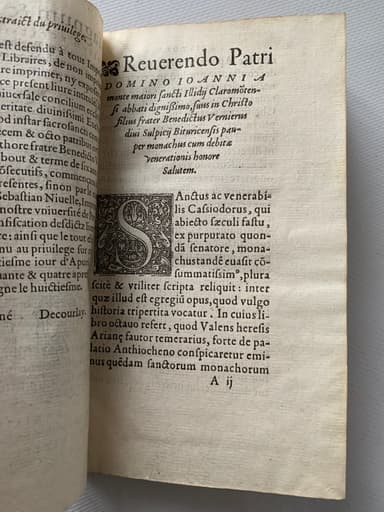 extraict du priuilege.
est defendu à tous Im-
Libraires, de non im-
re imprimer, ny expo-
iuersale concilium ec-
eritate diuinissimi Eu-
od instar sacrosancti co-
ecem & octo patribus
thore fratre Benedicto
bout & terme de six
osecutifs, commen-
resentes, sinon par le
Sebastian Niuelle, Im-
nostre vniuersité de P
nfiscation desdicts li-
re: ainsi que le tout est
nu au priuilege sur
tiesme iour d'A
nante & quatre apres
gne le huictiesme.
né. Decourlay.
Reuerendo Patri
DOMINO IOANNI A
monte maiori sancti Illidij Claromōten-
si abbati dignißimo, suus in Christo
filius frater Benedictus Vernierus
diui Sulpicij Bituricensis pau-
per monachus cum debitæ
venerationis honore
Salutem.
SAnctus ac venerabi-
lis Cassiodorus, qui
abiecto sæculi fastu,
ex purpurato quon-
dā senatore, mona-
chus tandē euasit cō-
summatissimꝰ, plura
scitè & vtiliter scripta reliquit: inter
quæ illud est egregiū opus, quod vulgo
historia tripertita vocatur. In cuius li-
bro octauo refert, quod Valens heresis
Arianę fautor temerarius, forte de pa-
latio Anthiocheno conspicaretur emi-
nus quēdam sanctorum monachorum
A ij